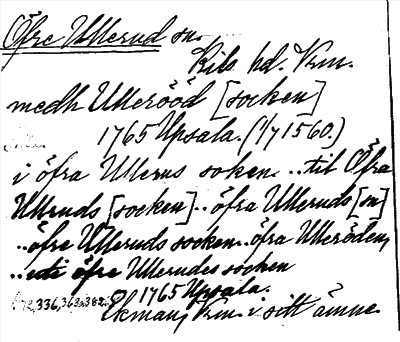 Öfre Ullerud sn.
Kils hd. Vrm.
medh Ullerööd [socken]
1765 Upsala. (1/7 1560.)
i öfra Ullerus soken...til Öfra
Ullruds [socken]..öfra Ulleruds [sn]
..öfre Ulleruds socken..öfra Ulleröden,
..uti öfre Ullerudes socken
1765 Upsala.
336,363,382
Ekman, Vrm. i sitt ämne